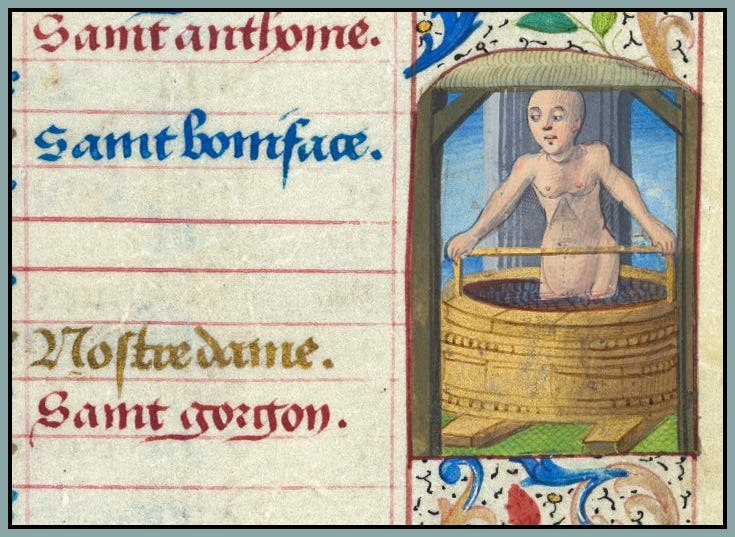 Saint anthoine.
Saint boniface.
Nostre dame.
Saint gorgon.